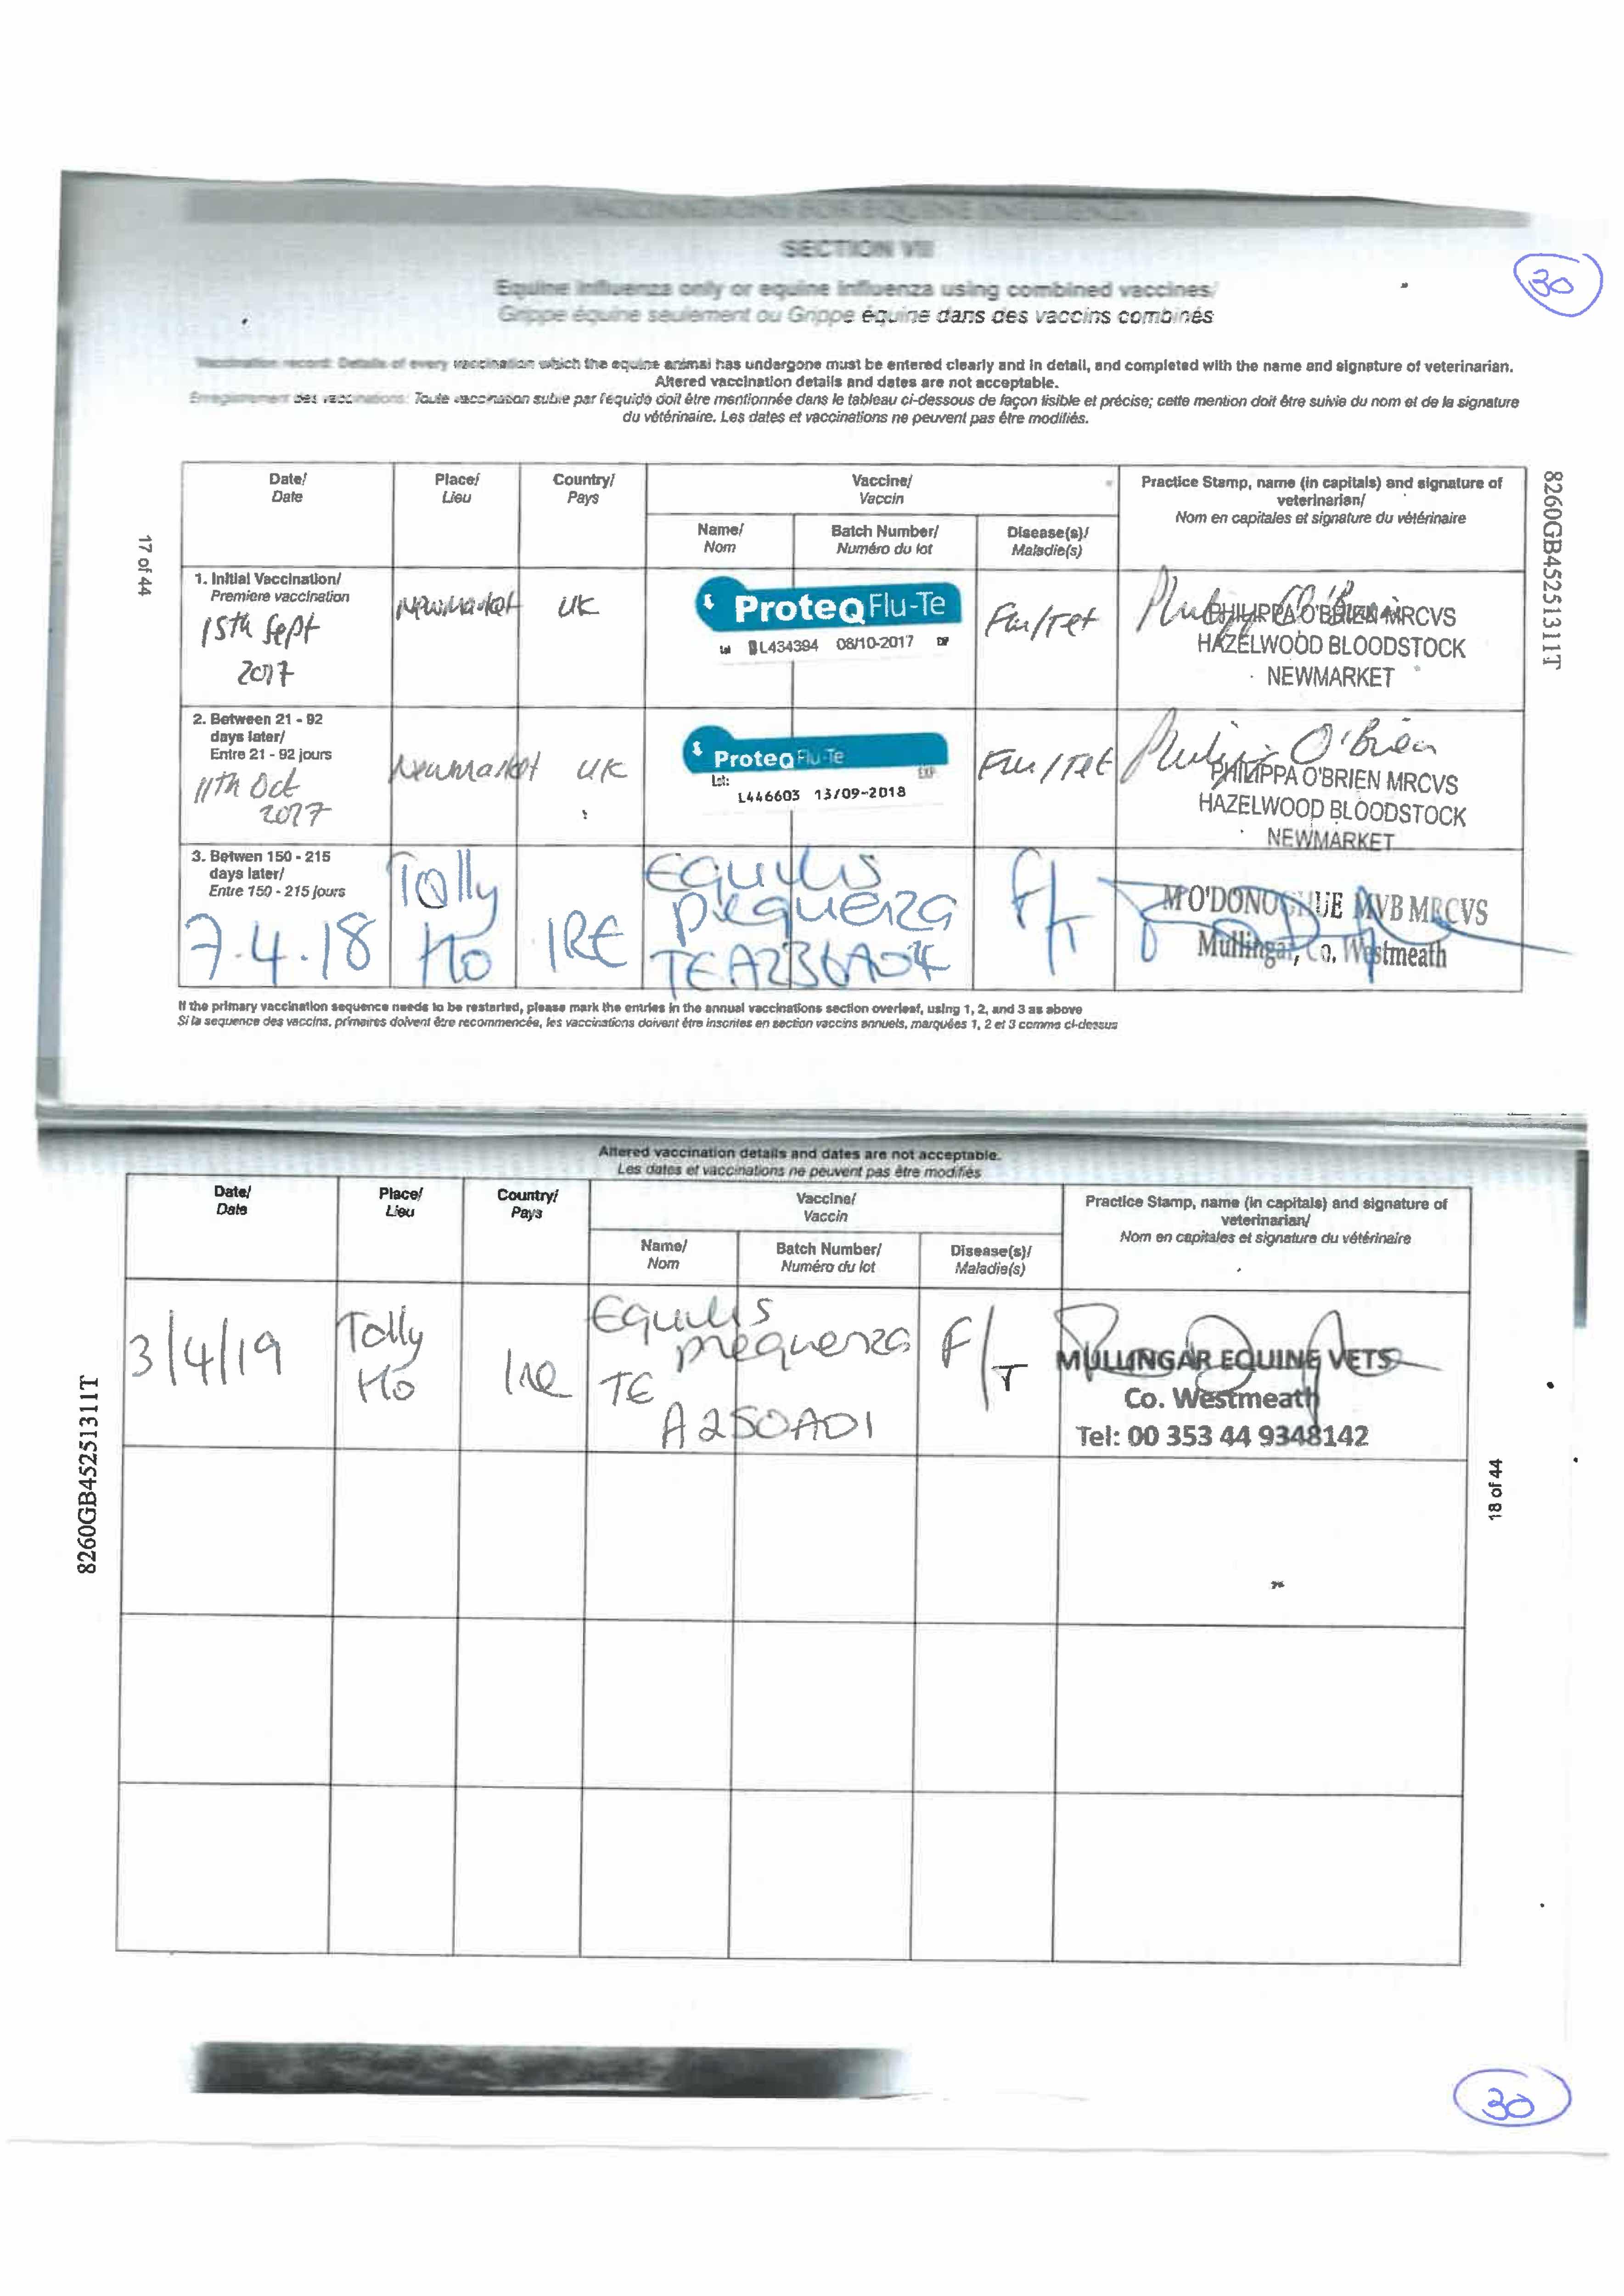 VACCINATIONS FOR EQUINE INFLUENZA
SECTION VII
30
Equine influenza only or equine influenza using combined vaccines/
Grippe équine seulement ou Grippe équine dans des vaccins combinés
Vaccination record: Details of every vaccination which the equine animal has undergone must be entered clearly and in detail, and completed with the name and signature of veterinarian.
Altered vaccination details and dates are not acceptable.
Enregistrement des vaccinations: Toute vaccination subie par l'equide doit être mentionnée dans le tableau ci-dessous de façon lisible et précise; cette mention doit être suivie du nom et de la signature
du vétérinaire. Les dates et vaccinations ne peuvent pas être modifiés.
17 of 44
8260GB45251311T
Date/ Place/ Country/ Vaccine/ Practice Stamp, name (in capitals) and signature of
Date Lieu Pays Vaccin veterinarian/
Nom en capitales et signature du vétérinaire
Name/ Batch Number/ Disease(s)/
Nom Numéro du lot Maladie(s)
1. Initial Vaccination/
Premiere vaccination
15th Sept
2017
Newmarket UK
ProteqFlu-Te
Lot L434394 08/10-2017
Flu/Tet
PHILIPPA O'BRIEN MRCVS
HAZELWOOD BLOODSTOCK
NEWMARKET
2. Between 21 - 92
days later/
Entre 21 - 92 jours
11th Oct
2017
Newmarket UK
Proteq Flu-Te
Lot: EXP
L446603 13/09-2018
Flu/Tet
Philippa O'Brien
PHILIPPA O'BRIEN MRCVS
HAZELWOOD BLOODSTOCK
NEWMARKET
3. Betwen 150 - 215
days later/
Entre 150 - 215 jours
7.4.18
Tolly
Ho
IRE
Equilis
prequenza
TE A236A04
F/T
M O'DONOGHUE MVB MRCVS
Mullingar, Co. Westmeath
If the primary vaccination sequence needs to be restarted, please mark the entries in the annual vaccinations section overleaf, using 1, 2, and 3 as above
Si la sequence des vaccins, primaires doivent être recommencée, les vaccinations doivent être inscrites en section vaccins annuels, marquées 1, 2 et 3 comme ci-dessus
Altered vaccination details and dates are not acceptable.
Les dates et vaccinations ne peuvent pas être modifiés
Date/ Place/ Country/ Vaccine/ Practice Stamp, name (in capitals) and signature of
Date Lieu Pays Vaccin veterinarian/
Nom en capitales et signature du vétérinaire
Name/ Batch Number/ Disease(s)/
Nom Numéro du lot Maladie(s)
3/4/19
Tolly
Ho
Ire
Equilis
prequenza
TE
A250A01
F/T
MULLINGAR EQUINE VETS
Co. Westmeath
Tel: 00 353 44 9348142
8260GB45251311T
18 of 44
30